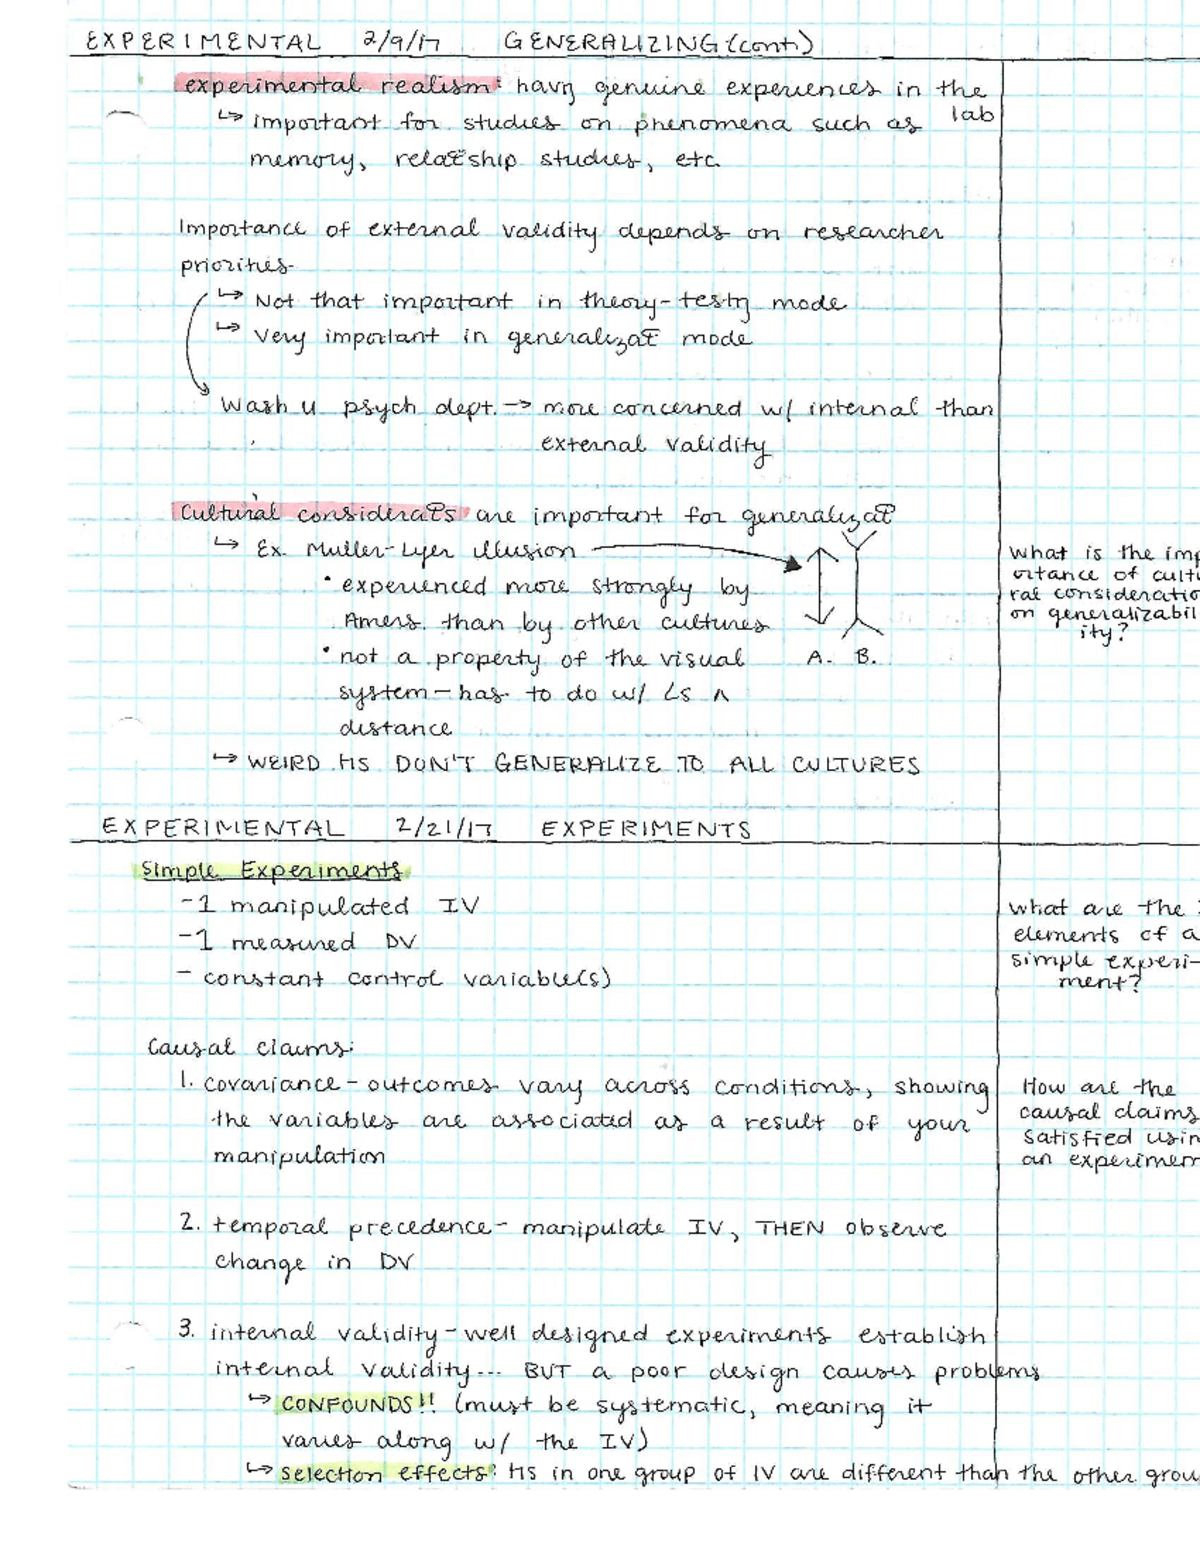 EXPERIMENTAL 2/9/17 GENERALIZING (cont.)
experimental realism: havg genuine experiences in the lab
↳ important for studies on phenomena such as
memory, relatship studies, etc.
Importance of external validity depends on researcher
priorities
↳ Not that important in theory-testg mode
↳ Very important in generalizat mode
Wash u psych dept. → more concerned w/ internal than
external validity
Cultural considerats are important for generalizat
↳ Ex. Muller-Lyer illusion
• experienced more strongly by
Amers. than by other cultures
• not a property of the visual
system - has to do w/ ∠s ∧
distance
A. B.
↳ WEIRD Hs DON'T GENERALIZE TO ALL CULTURES
What is the imp
ortance of cultu
ral consideratio
on generalizabil
ity?
EXPERIMENTAL 2/21/17 EXPERIMENTS
Simple Experiments
- 1 manipulated IV
- 1 measured DV
- constant control variable(s)
what are the
elements of a
simple experi-
ment?
Causal claims:
1. covariance - outcomes vary across conditions, showing
the variables are associated as a result of your
manipulation
How are the
causal claims
satisfied usin
an experimen
2. temporal precedence - manipulate IV, THEN observe
change in DV
3. internal validity - well designed experiments establish
internal validity... BUT a poor design causes problems
↳ CONFOUNDS!! (must be systematic, meaning it
varies along w/ the IV)
↳ selection effects: Hs in one group of IV are different than the other grou